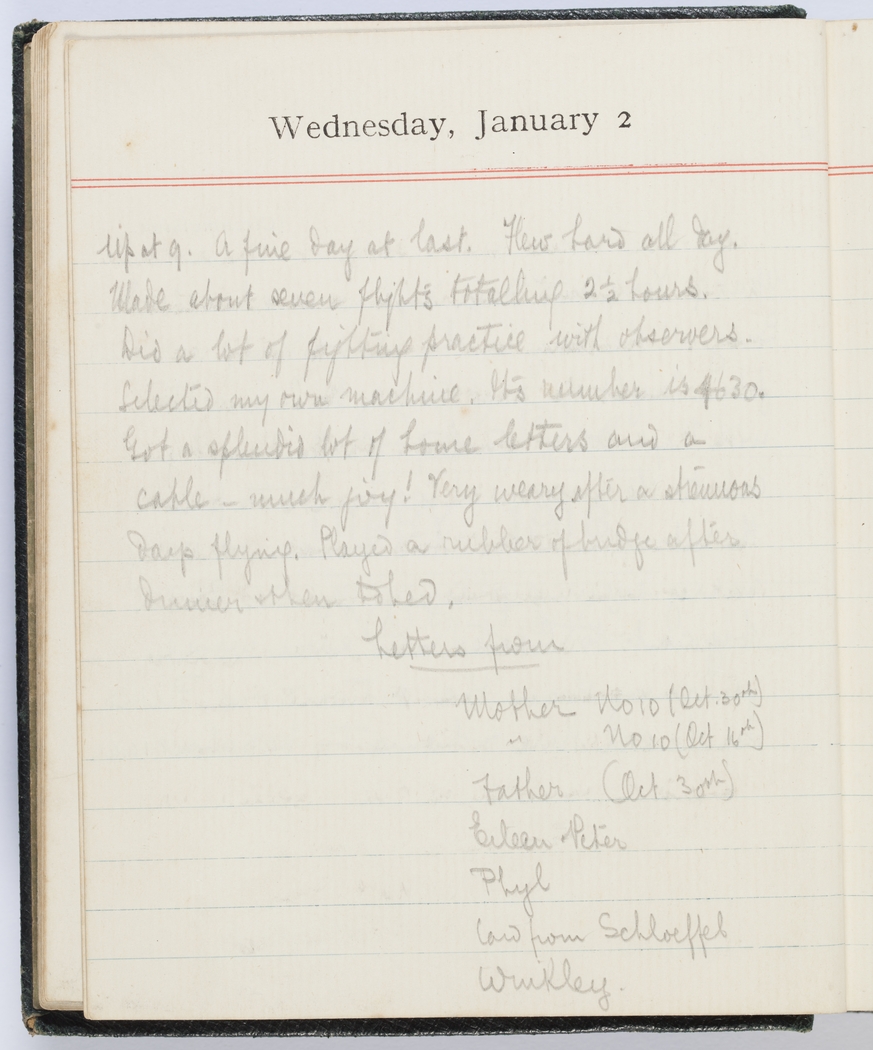 Wednesday, January 2
Up at 9. A fine day at last. Flew hard all day.
Made about seven flights totalling 2½ hours.
Did a lot of fighting practice with observers.
Selected my own machine. Its number is 630.
Got a splendid lot of home letters and a
cable - much joy! Very weary after a strenuous
days flying. Played a rubber of bridge after
dinner & then to bed.
Letters from
Mother No 10 (Oct. 30th)
" No 10 (Oct 16th)
Father (Oct. 30th)
Eileen & Peter
Phyl
Card from Schloeffel
Winkley.